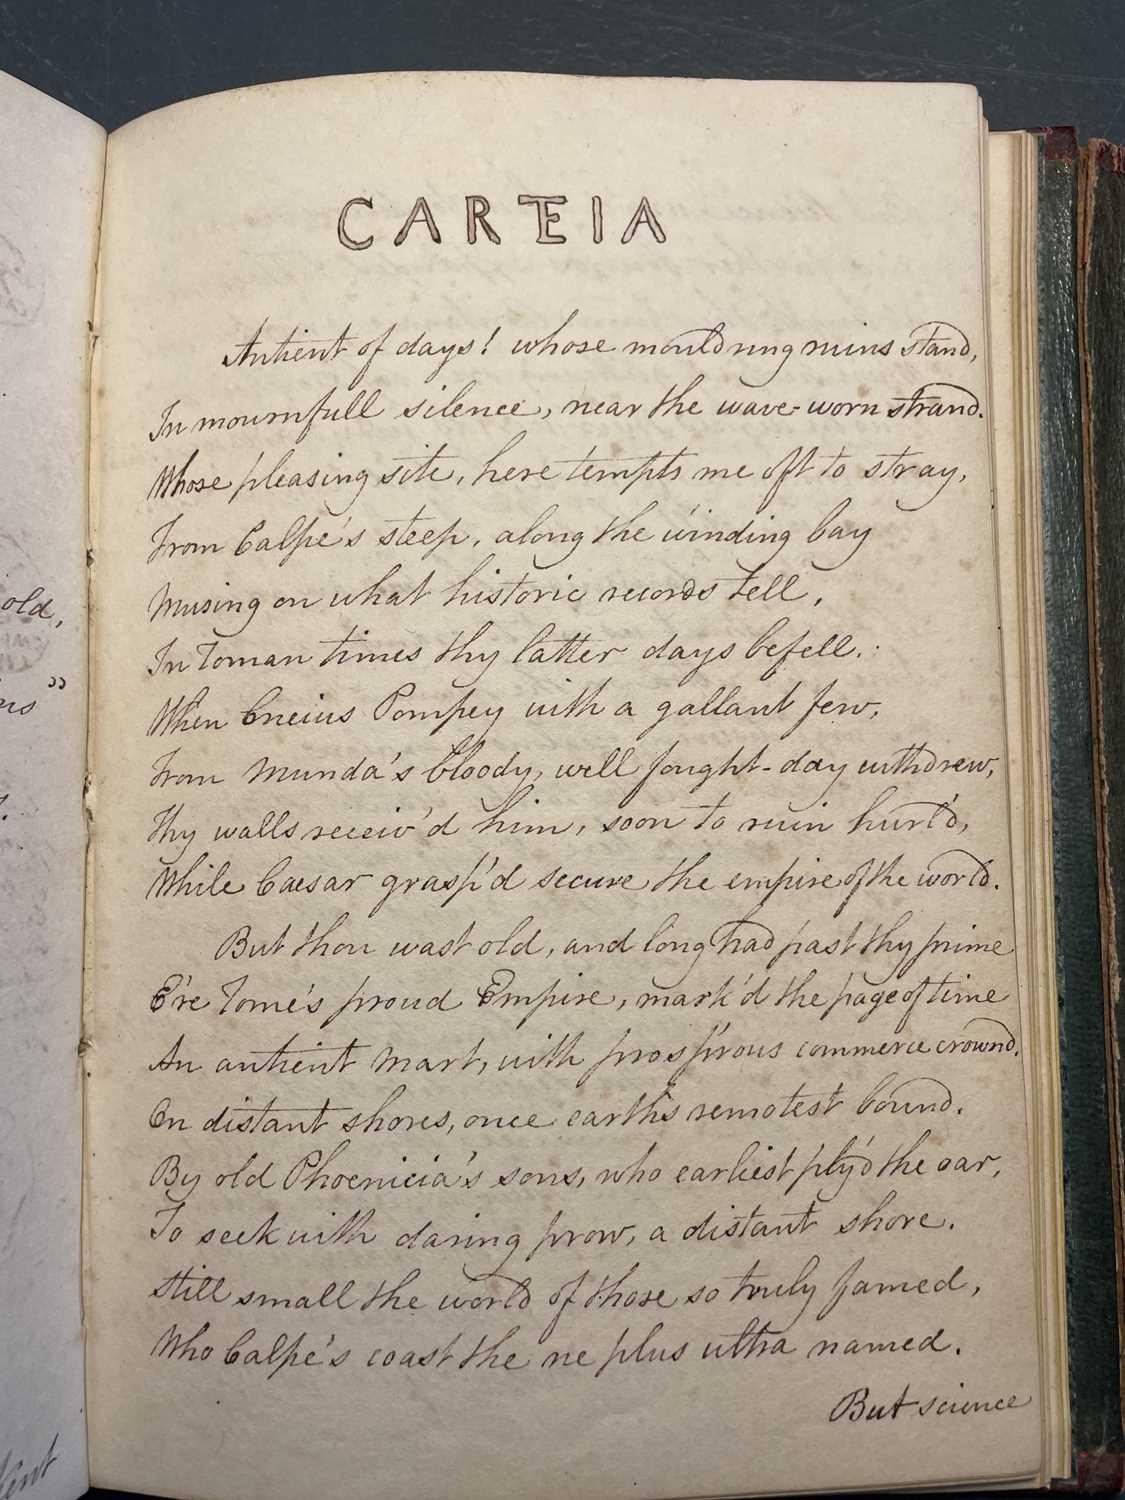 old,
"
CARTEIA
Antient of days! whose mould'ring ruins stand,
In mournfull silence, near the wave-worn strand.
Whose pleasing site, here tempts me oft to stray,
From Calpe's steep, along the winding bay
Musing on what historic records tell,
In Roman times thy latter days befell.
When Cneius Pompey with a gallant few,
From Munda's bloody, well fought-day withdrew,
Thy walls receiv'd him, soon to ruin hurl'd,
While Caesar grasp'd secure the empire of the world.
But thou wast old, and long had past thy prime
E're Rome's proud Empire, mark'd the page of time
An antient Mart, with prosp'rous commerce crownd.
On distant shores, once earth's remotest bound.
By old Phoenicia's sons, who earliest ply'd the oar,
To seek with daring prow, a distant shore.
Still small the world of those so truly famed,
Who Calpe's coast the ne plus ultra named.
But science